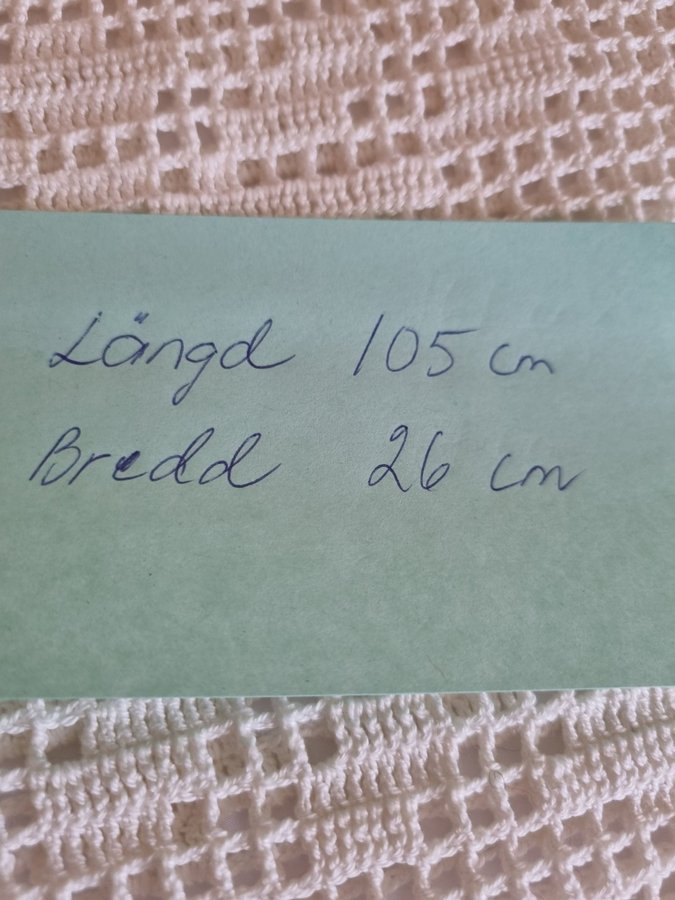 Längd 105 cm
Bredd 26 cm